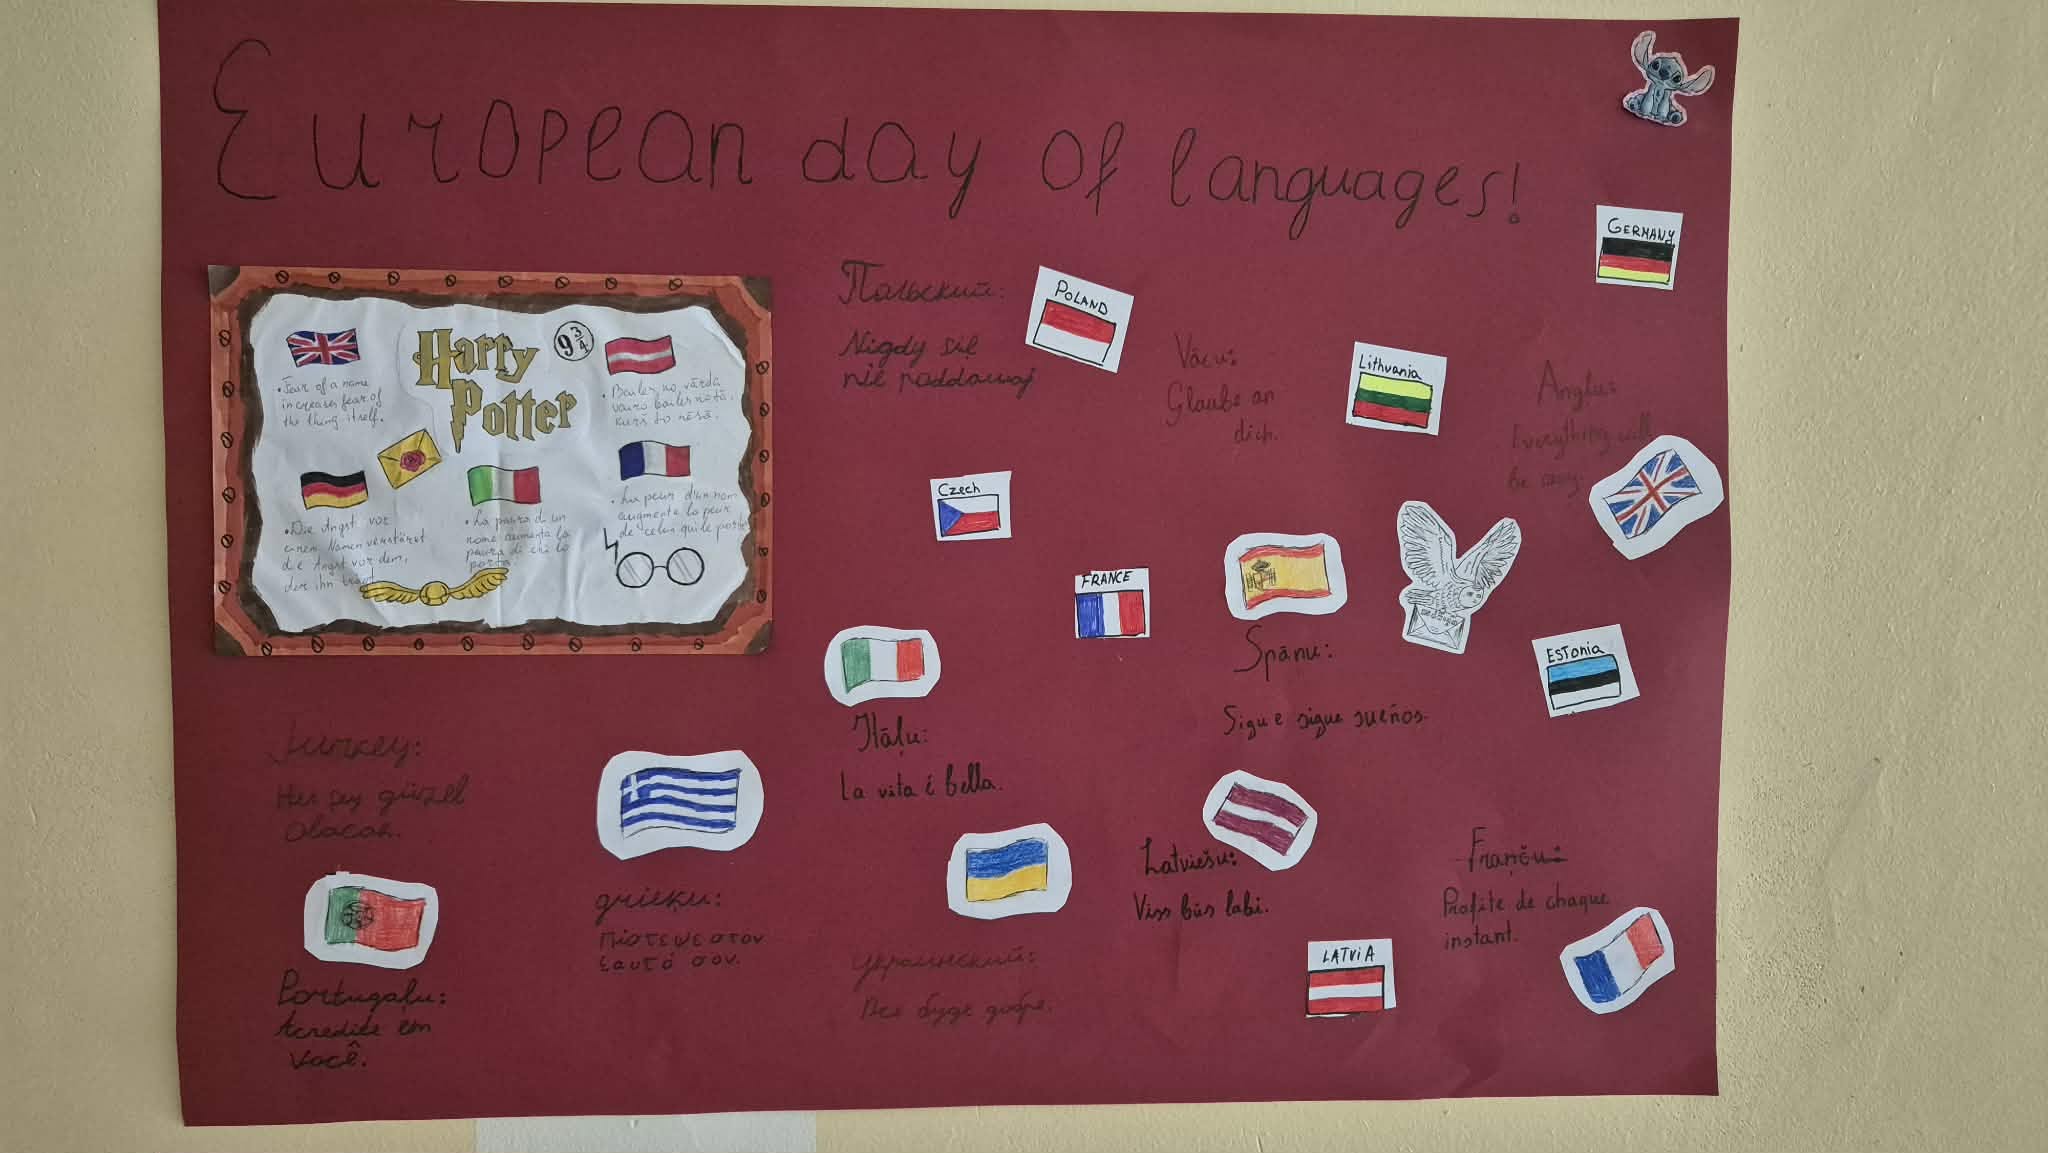 European day of languages!
GERMANY
Harry
Potter
9 3/4
• Fear of a name
increases fear of
the thing itself.
• Bailes no vārda
vairo bailes no tā,
kurš to nēsā.
• Die Angst vor
einem Namen verstärkt
die Angst vor dem,
der ihn trägt.
• La paura di un
nome aumenta la
paura di chi lo
porta.
• La peur d'un nom
augmente la peur
de celui qui le porte
Польский:
Nigdy się
nie poddawaj
POLAND
Vācu:
Glaube an
dich.
Lithuania
Angļu:
Everything will
be okay.
Czech
FRANCE
Spānu:
Sigue sigue sueños.
ESTonia
Itāļu:
La vita é bella.
Turkey:
Her şey güzel
olacak.
grieķu:
Πίστεψε στον
εαυτό σου.
Portugaļu:
Acredite em
você.
украинский:
Все буде добре.
Latviešu:
Viss būs labi.
LATViA
Franču:
Profite de chaque
instant.